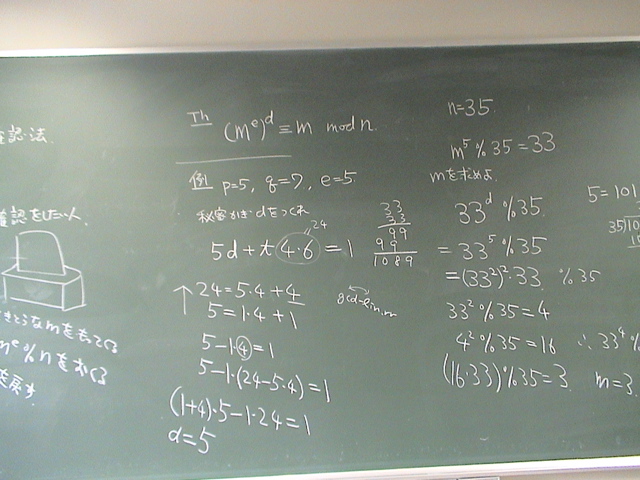 認法.
確認をしたい人
mᵉ%nをおくる
Th (mᵉ)ᵈ≡m mod n.
例 p=5, q=7, e=5
秘密かぎdをつくれ
5d+t(4・6)=1
24
↑ 24=5・4+4
5=1・4+1
5-1・④=1
5-1・(24-5・4)=1
(1+4)・5-1・24=1
d=5
33
33
99
99
1089
n=35
m⁵%35=33
mを求めよ
33ᵈ%35
=33⁵%35
=(33²)²・33 %35
33²%35=4
4²%35=16 ∴33⁴%
(16・33)%35=3 m=3.
5=101
35)10